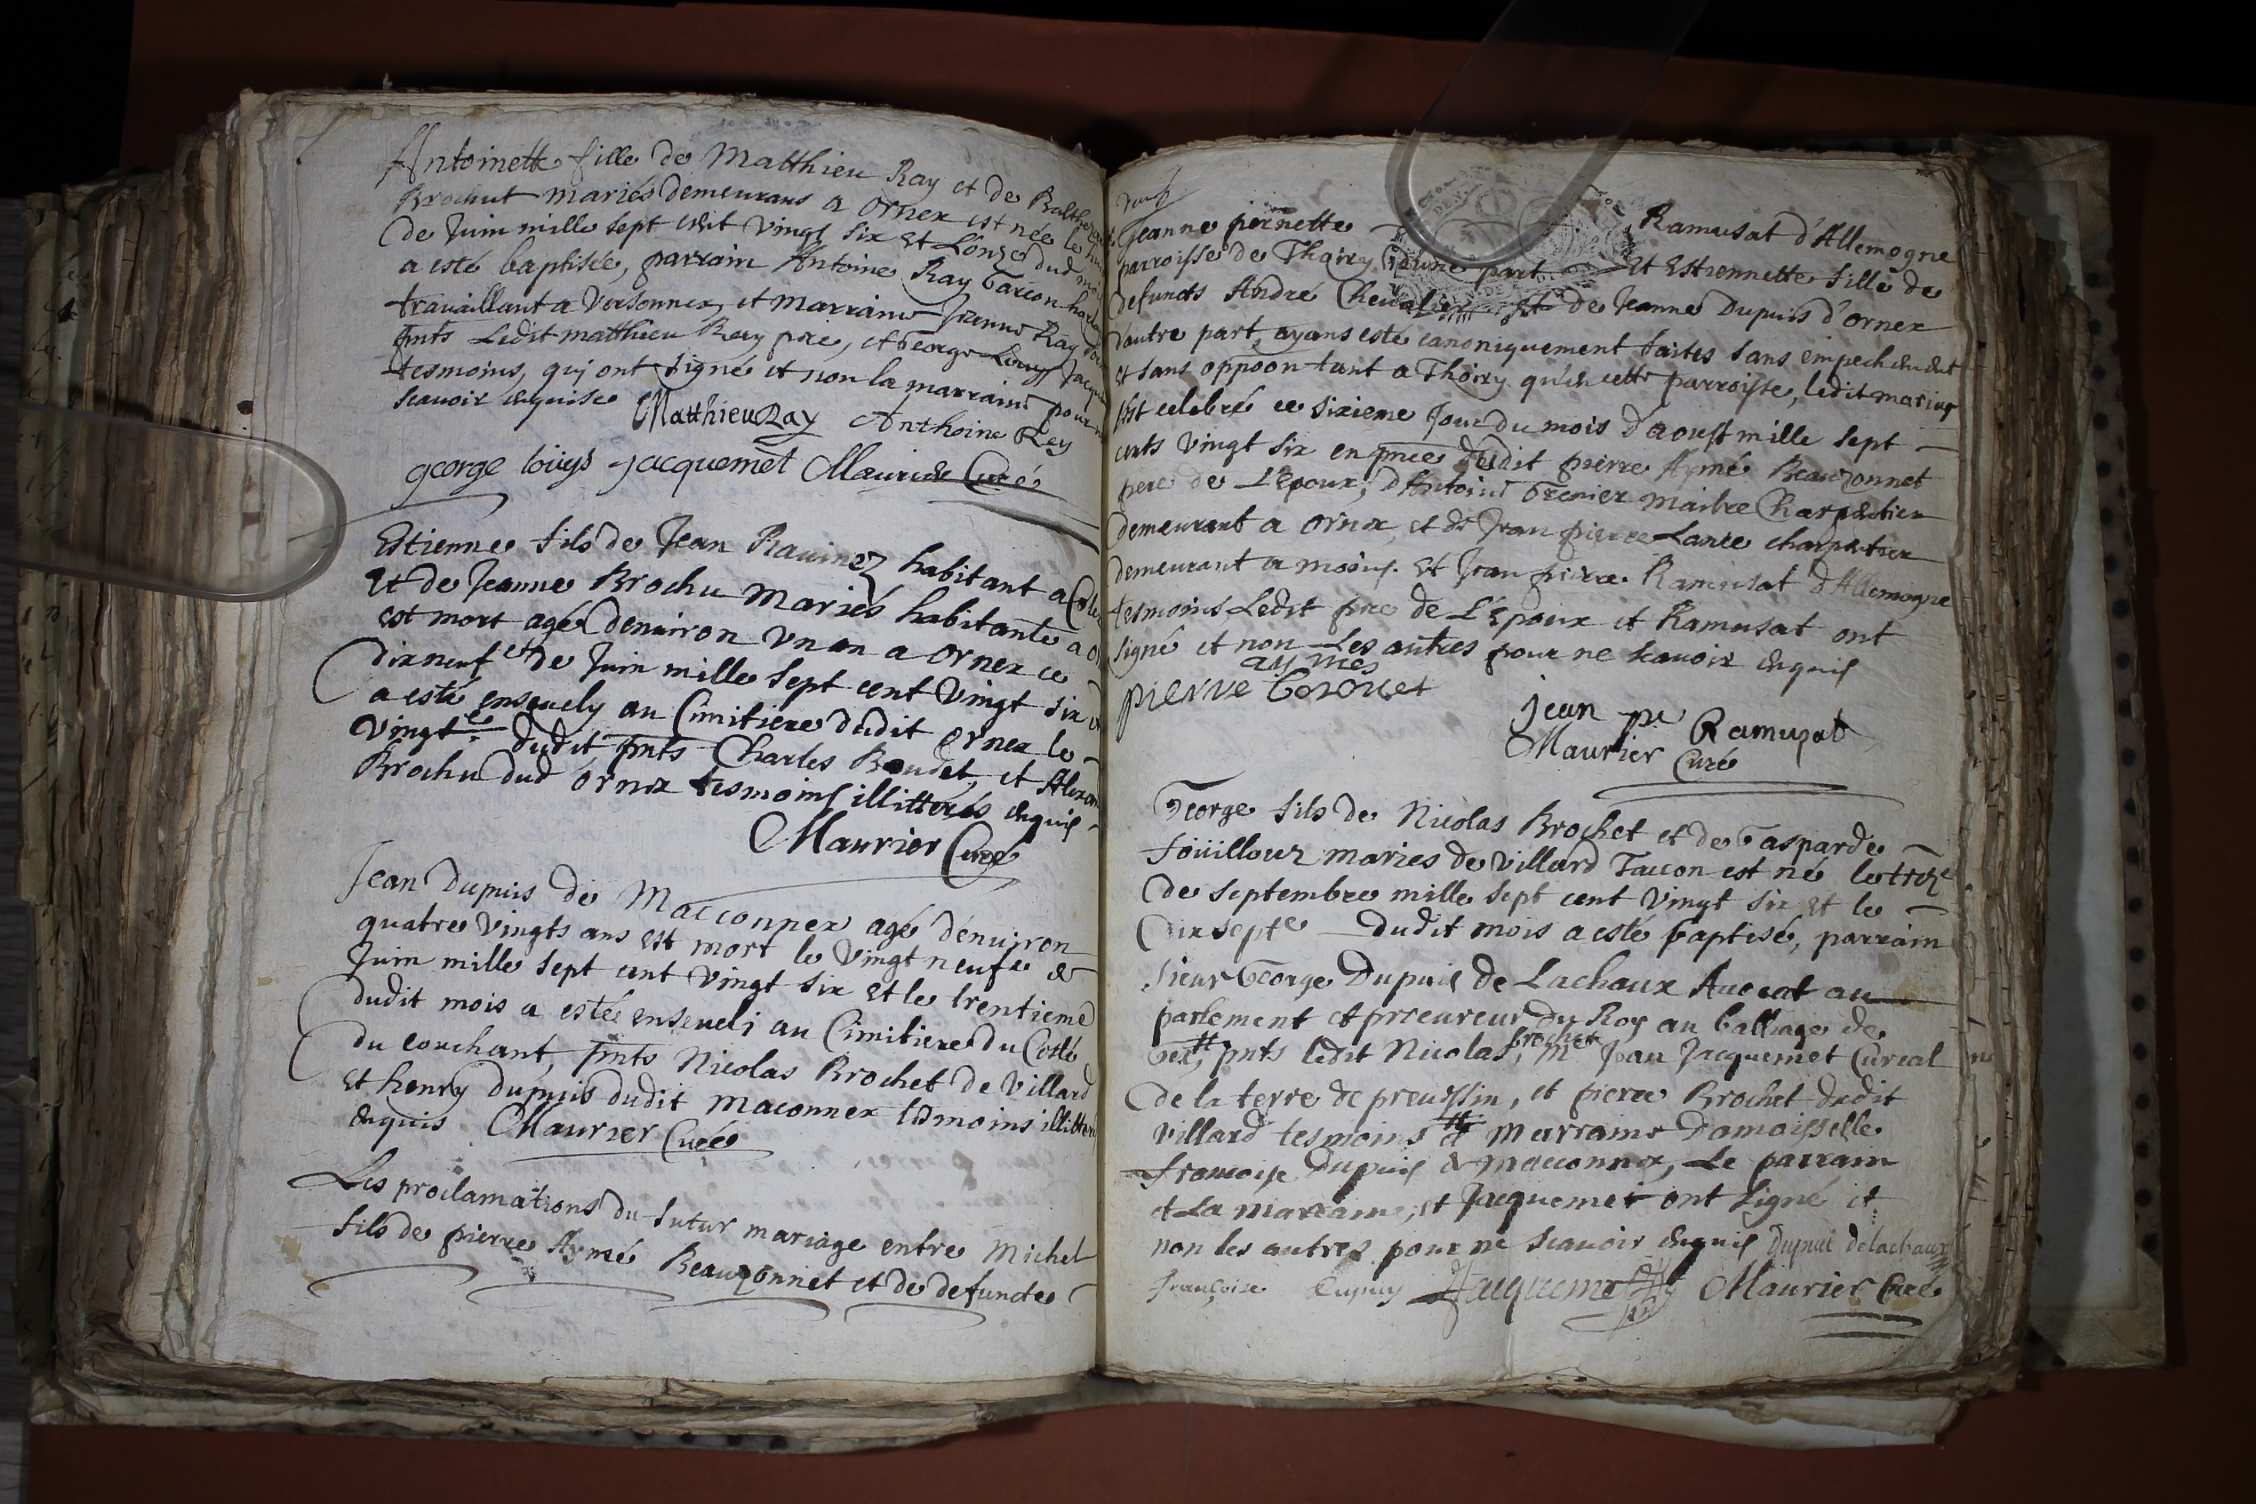 Antoinette fille de Matthieu Ray et de
Brochut mariés demeurans a Ornex est née le
de Juin mille sept cent vingt six et L'onze dud
a esté baptisée, parrain Antoine Ray Garcon
travaillant a Versonnex, et Marraine Jeanne Ray
pnts Ledit matthieu Ray pere, et George Louys
tesmoins, qui ont signé et non la marraine pour
scavoir enquise
Matthieu Ray Anthoine Rey
george louys jacquemet Maurier Curé
Estienne fils de Jean Ravinez habitant a
et de Jeanne Brochu Mariés habitante a
est mort agé denuiron vn an a Ornex ce
dixneuf de Juin mille sept cent vingt six
a esté enseuely au Cimitiere dudit ornex le
vingte dudit, pnts Charles Baudet, et
Brochu dud ornex tesmoins illitterés enquis
Maurier Curé
Jean Dupuis de Macconnex agé d'enuiron
quatre vingts ans est mort le vingt neufe de
Juin mille sept cent vingt six et le trentieme
dudit mois a esté enseueli au Cimitiere du Costé
du couchant, pnts Nicolas Brochet de Villard
et henry dupuis dudit maconnex tesmoins
enquis Maurier Curé
Les proclamations du futur mariage entre Michel
fils de pierre Aymé Beauzonnet et de defuncte
Jeanne pernette Ramusat d'Allemogne
parroisse de Thoiry d'une part et Estiennette fille de
defuncts André Cheualier et de Jeanne Dupuis d'ornex
d'autre part, ayans esté canoniquement faites sans
et sans oppoon tant a Thoiry qu'en cette parroisse, ledit mariage
est celebré ce sixieme Jour du mois d'aoust mille sept
cents vingt six en pnce dudit pierre Aymé Beauzonnet
pere de L'Epoux, d'Antoine Grenier maitre Charpentier
demeurant a Ornex, et de Jean pierre Lance charpentier
demeurant a et Jean pierre Ramusat d'Allemogne
tesmoins Ledit pere de L'Epoux et Ramusat ont
signé et non Les autres pour ne scavoir enquis
aymes
pierre
jean pe Ramuzat
Maurier Curé
George fils de Nicolas Brochet et de Gasparde
foüilloux maries de Villard Taccon est né le
de septembre mille sept cent vingt six et le
dix septe dudit mois a esté baptisé, parrain
Sieur George Dupuis de Lachaux Auocat au
parlement et procureur du Roy au balliage de
Gex, pnts ledit Nicolas brochet, Me Jean Jacquemet Curial
de la terre de preuessin, et pierre Brochet dudit
Villard tesmoins Marraine Damoisselle
francoise Dupuis de macconnex, Le parrain
et La marraine, et Jacquemet ont signé et
non les autres pour ne scavoir enquis Dupuis delachaux
françoise Dupuy Jacquemet Maurier Curé